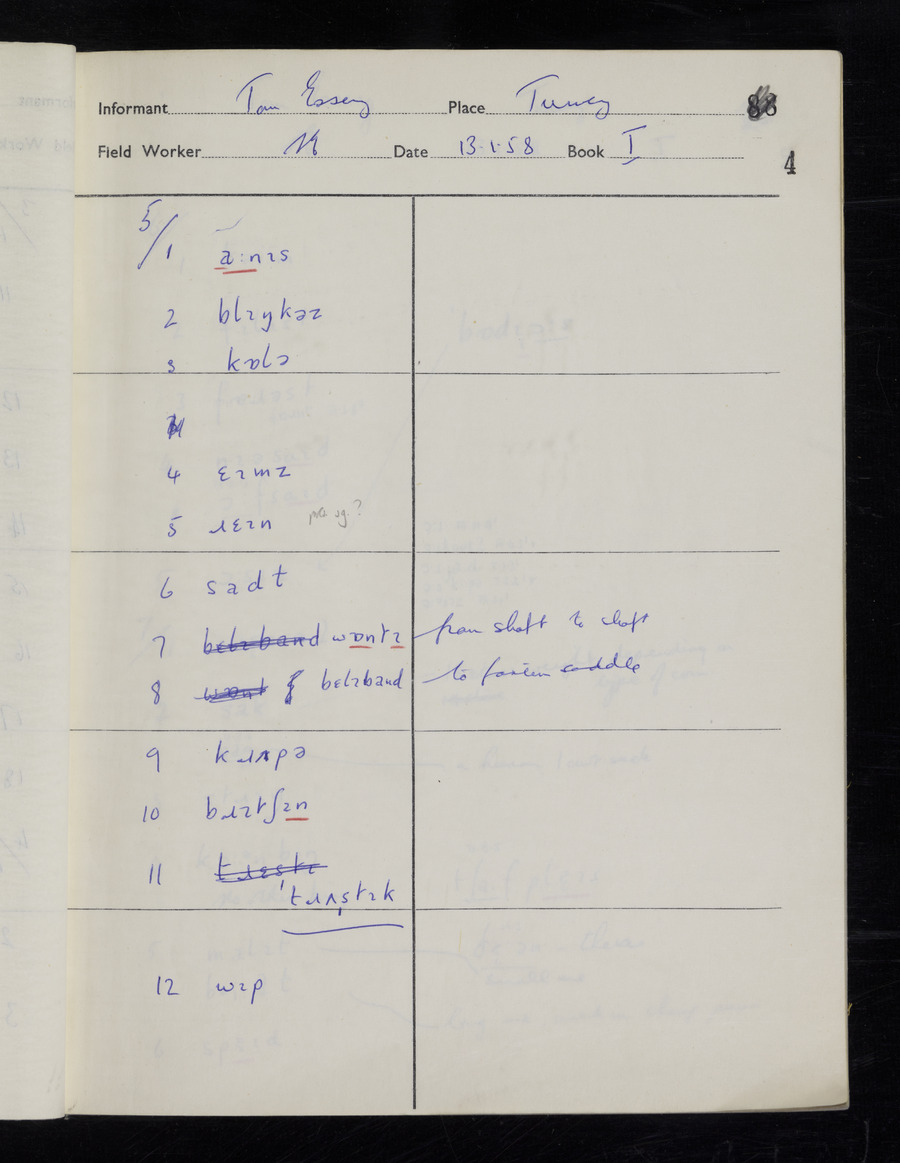 Informant Tom Essery Place Turvey 88
Field Worker Date 13.1.58 Book I
4
5/
1 a:nɪs
2 blɪŋkəz
3 kɒlə
4 ɛɪmz
5 ɹɛɪn sg.?
6 sadt
7 belɪband wɒntɪ from shaft to shaft
8 want belɪband to fasten saddle
9 kɹʌpə
10 bɹɪtʃɪn
11 tɹɛstɪ
ˈtɹʌstɪk
12 wɪp